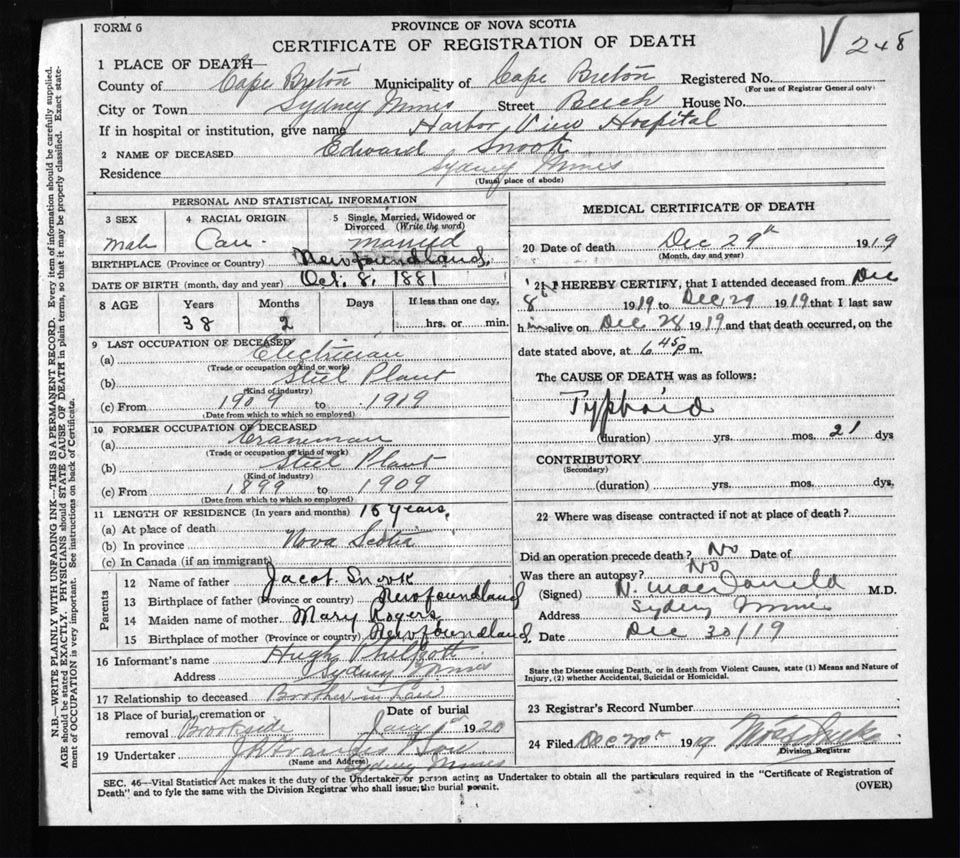 FORM 6
PROVINCE OF NOVA SCOTIA
CERTIFICATE OF REGISTRATION OF DEATH
V 248
1 PLACE OF DEATH—
County of Cape Breton Municipality of Cape Breton Registered No.
(For use of Registrar General only)
City or Town Sydney Mines Street Beech House No.
If in hospital or institution, give name Harbor View Hospital
2 NAME OF DECEASED Edward Snook
Residence Sydney Mines
(Usual place of abode)
PERSONAL AND STATISTICAL INFORMATION
3 SEX 4 RACIAL ORIGIN 5 Single, Married, Widowed or
Divorced (Write the word)
male Cau. married
BIRTHPLACE (Province or Country) Newfoundland.
DATE OF BIRTH (month, day and year) Oct. 8, 1881
8 AGE Years Months Days If less than one day,
38 2 hrs. or min.
9 LAST OCCUPATION OF DECEASED
(a) Electrician
(Trade or occupation or kind or work)
(b) Steel Plant
(Kind of industry)
(c) From 1909 to 1919
(Date from which to which so employed)
10 FORMER OCCUPATION OF DECEASED
(a) Craneman
(Trade or occupation of kind of work)
(b) Steel Plant
(Kind of industry)
(c) From 1899 to 1909
(Date from which to which so employed)
11 LENGTH OF RESIDENCE (In years and months) 15 years,
(a) At place of death
(b) In province Nova Scotia
(c) In Canada (if an immigrant)
Parents
12 Name of father Jacob Snook
13 Birthplace of father (Province or country) Newfoundland
14 Maiden name of mother Mary Rogers
15 Birthplace of mother (Province or country) Newfoundland.
16 Informant's name Hugh Philpott
Address Sydney Mines
17 Relationship to deceased Brother in Law
18 Place of burial, cremation or Date of burial
removal Brookside Jany 1st 1920
19 Undertaker
(Name and Address) Sydney Mines
MEDICAL CERTIFICATE OF DEATH
20 Date of death Dec 29th 1919
(Month, day and year)
21 I HEREBY CERTIFY, that I attended deceased from Dec
8th 1919 to Dec 29 1919 that I last saw
him alive on Dec 28 1919 and that death occurred, on the
date stated above, at 6 45 p.m.
The CAUSE OF DEATH was as follows:
Typhoid
(duration) yrs. mos. 21 dys
CONTRIBUTORY
(Secondary)
(duration) yrs. mos. dys.
22 Where was disease contracted if not at place of death?
Did an operation precede death? No Date of
Was there an autopsy? No
(Signed) N. MacDonald M.D.
Address Sydney Mines
Date Dec 30/19
State the Disease causing Death, or in death from Violent Causes, state (1) Means and Nature of
Injury, (2) whether Accidental, Suicidal or Homicidal.
23 Registrar's Record Number
24 Filed Dec 30th 1919
Division Registrar
SEC. 46—Vital Statistics Act makes it the duty of the Undertaker or person acting as Undertaker to obtain all the particulars required in the "Certificate of Registration of
Death" and to fyle the same with the Division Registrar who shall issue the burial permit.
(OVER)
N.B.—WRITE PLAINLY WITH UNFADING INK—THIS IS A PERMANENT RECORD. Every item of information should be carefully supplied.
AGE should be stated EXACTLY. PHYSICIANS should STATE CAUSE OF DEATH in plain terms, so that it may be properly classified. Exact state-
ment of OCCUPATION is very important. See instructions on back of Certificate.